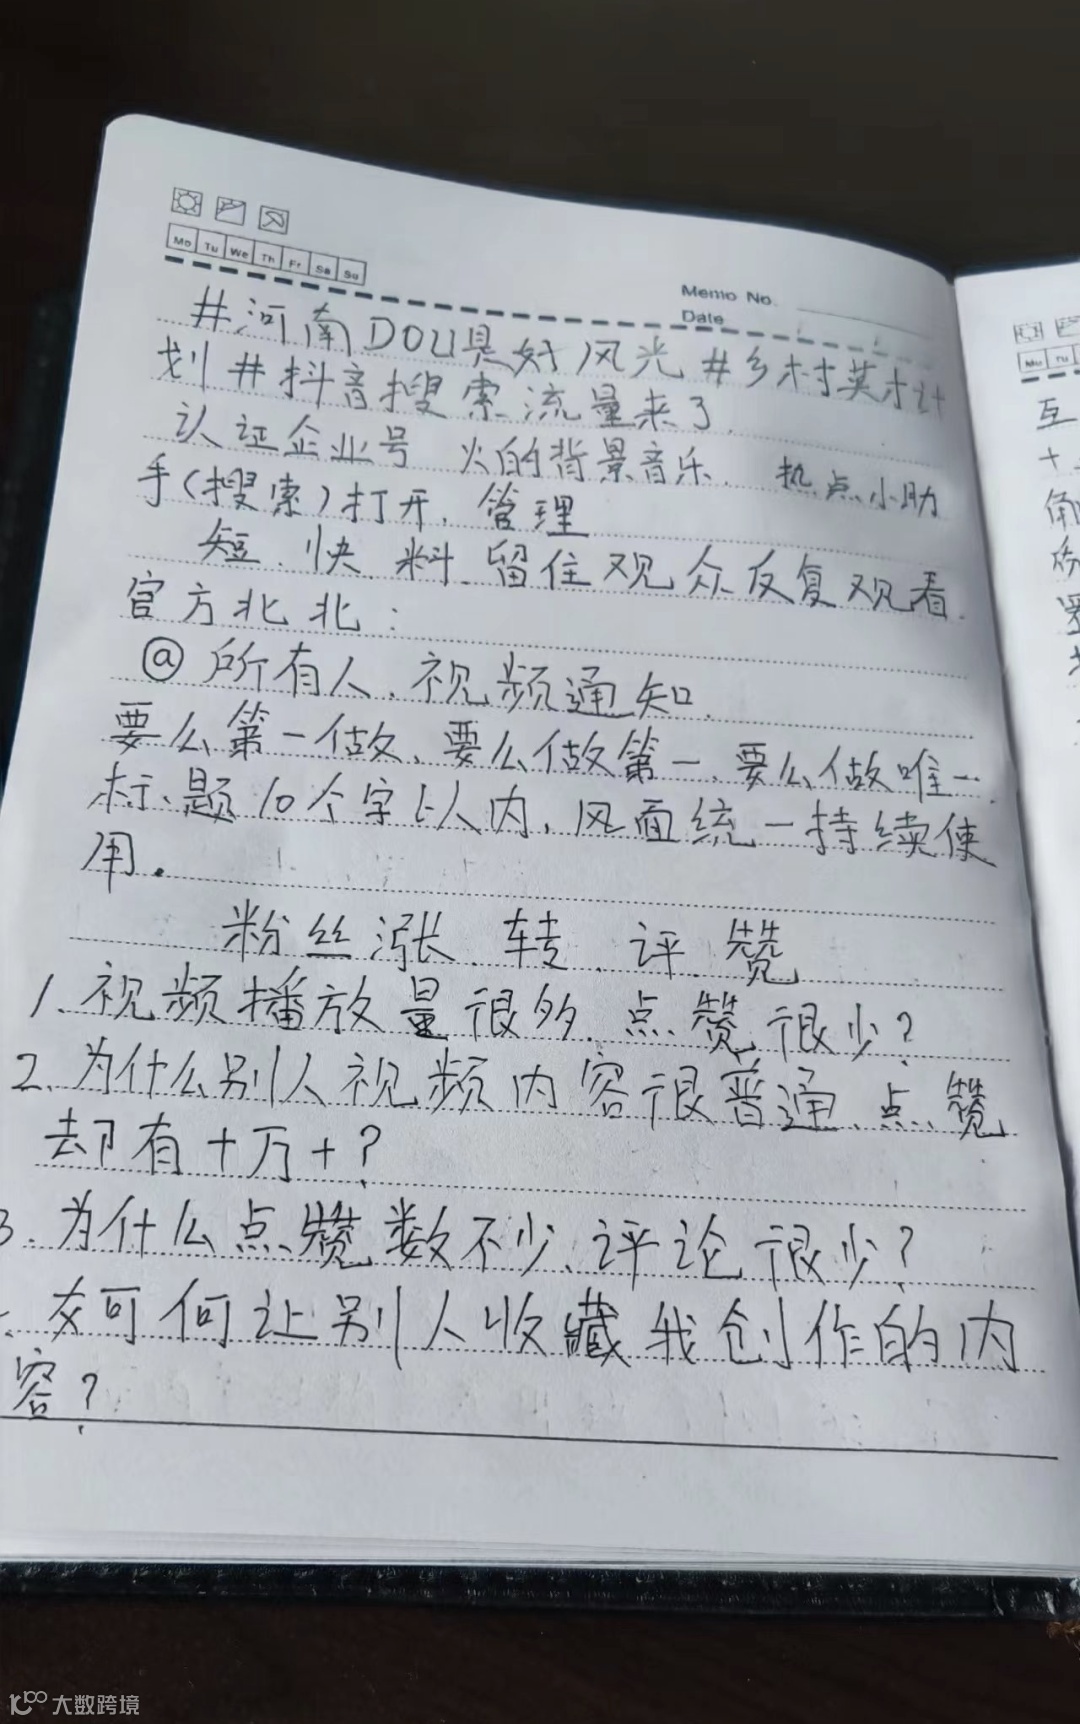 Mo Tu We Th Fr Sa Su
Memo No.
Date
#河南DOU是好风光#乡村英才计
划#抖音搜索流量来了
认证企业号 火的背景音乐. 热点小助
手(搜索)打开. 管理
短.快.料.留住观众反复观看.
官方北北:
@所有人.视频通知.
要么第一做、要么做第一、要么做唯一.
标题10个字以内,风面统一持续使
用.
粉丝涨.转.评.赞
1.视频播放量很多.点赞很少?
2.为什么别人视频内容很普通.点赞
却有十万+?
3.为什么点赞数不少、评论很少?
何让别人收藏我创作的内
容?
Mo Tu
互
+
角
大数跨境